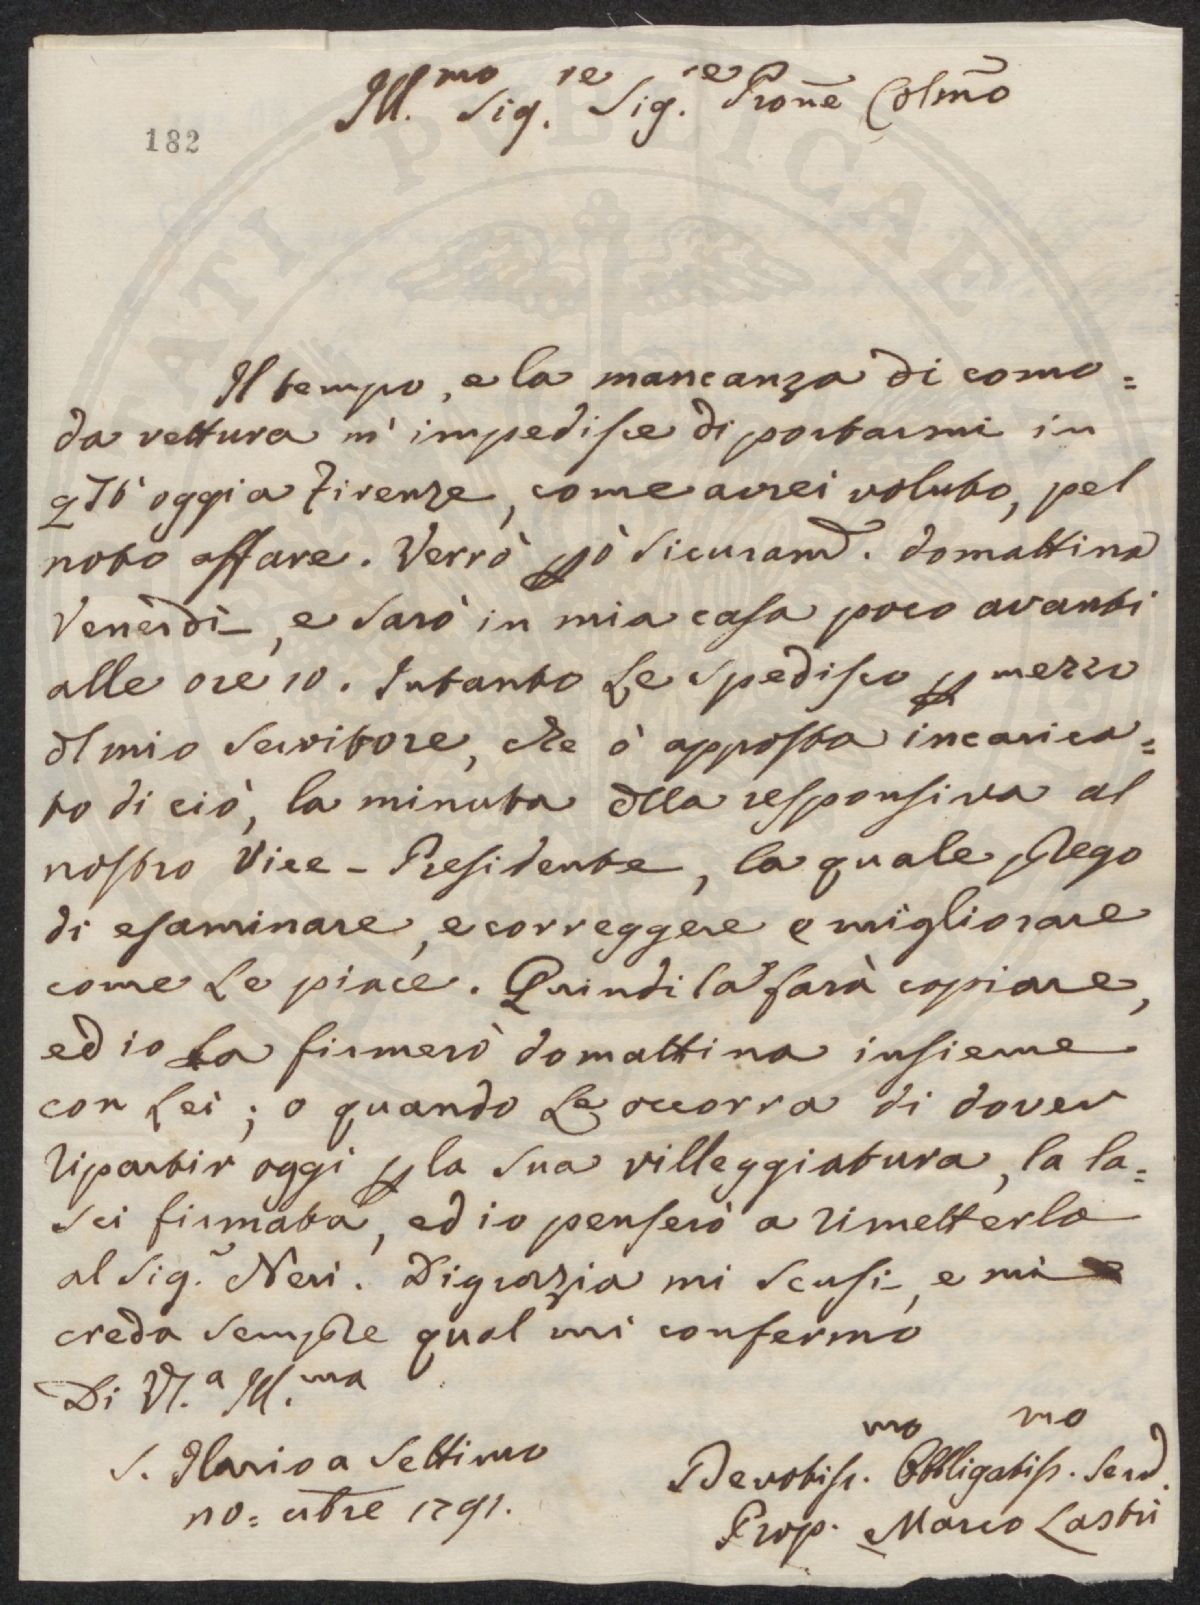 Ill.mo Sig.re Sig.re Prone Colmo
182
Il tempo, e la mancanza di como=
da vettura m'impedisce di portarmi in
oggi a Firenze, come avrei voluto, pel
noto affare. Verrò pò sicuram. domattina
Venerdì, e sarò in mia casa poco avanti
alle ore 10. Intanto Le spedisco p mezzo
dl mio servitore, che ò apposta incarica=
to di ciò, la minuta dlla responsiva al
nostro Vice-Presidente, la quale prego
di esaminare, e correggere e migliorare
come Le piace. Quindi la farà copiare,
ed io la firmerò domattina insieme
con Lei; o quando Le occorra di dover
ripartir oggi p la sua villeggiatura, la la=
sci firmata, ed io penserò a rimetterla
al Sig.r Neri. Digrazia mi scusi, e mi
creda sempre qual mi confermo
Di VS.a Ill.ma
S. Ilario a Settimo
10= 1791.
Devotiss.mo Obbligatiss.mo Serv.
Prop. Marco Lastri